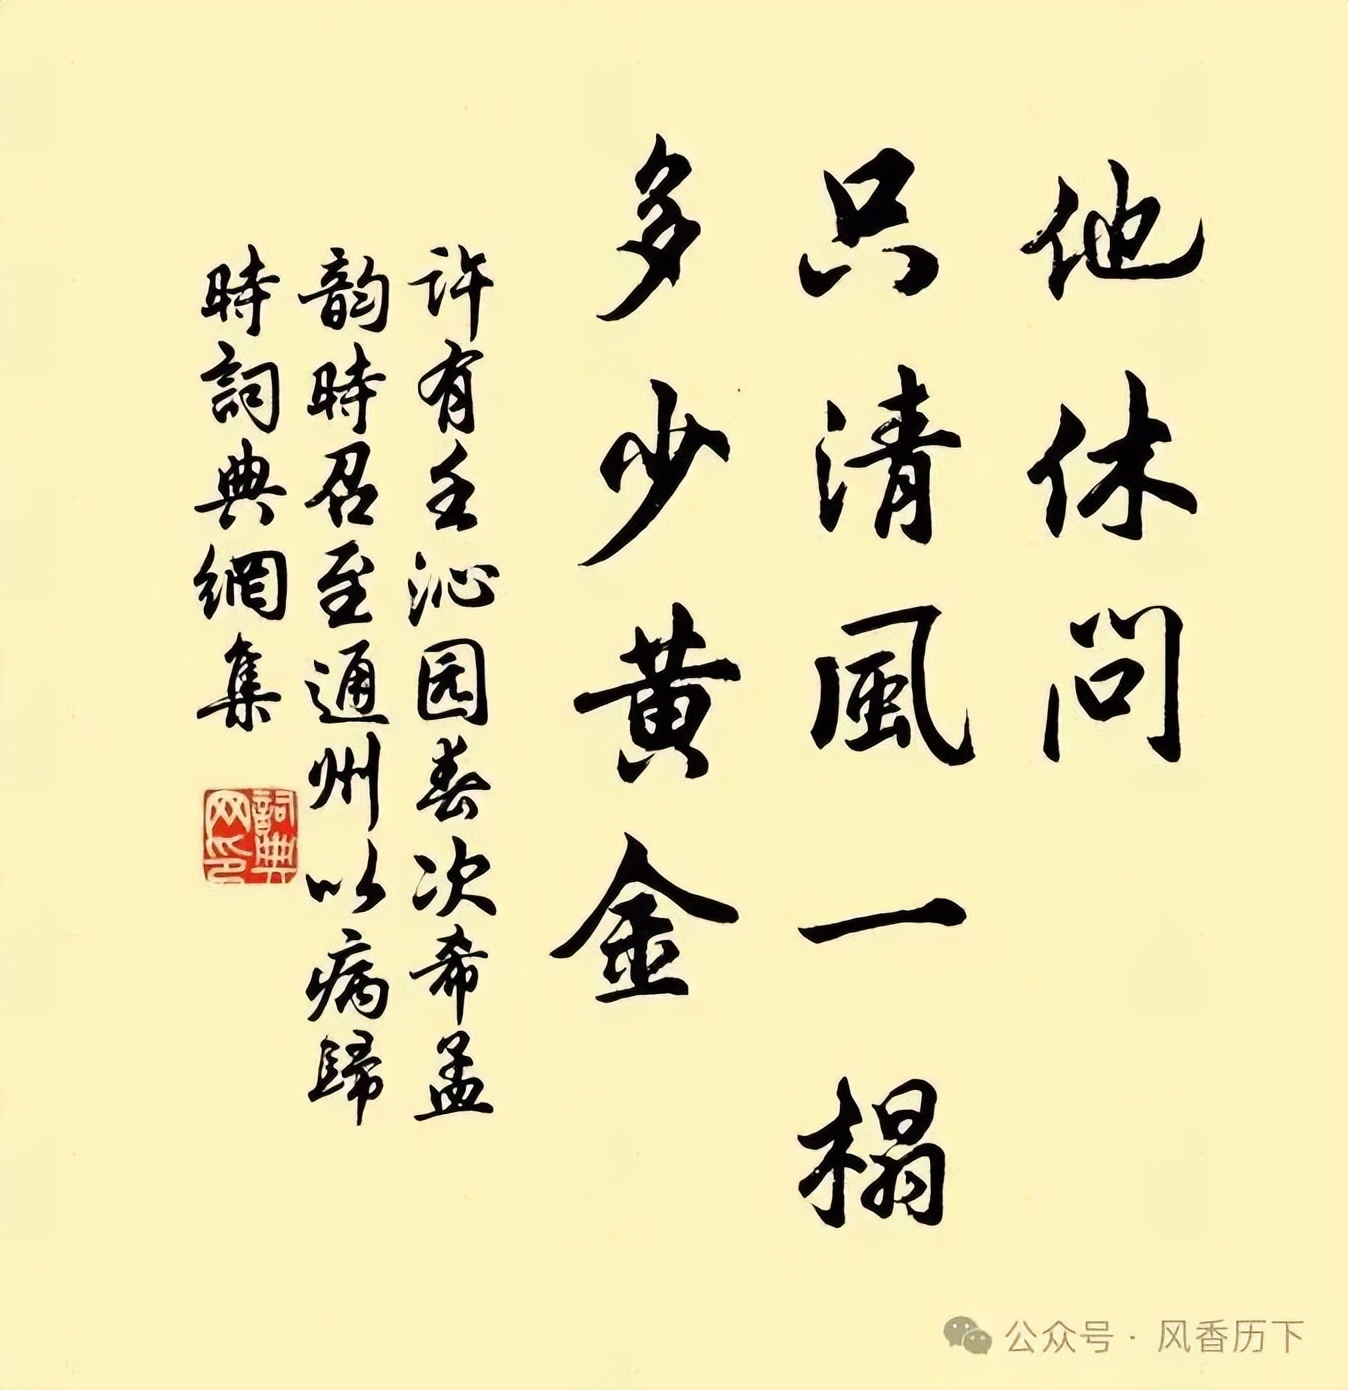 他休问
只清風一榻
多少黄金
许有壬沁园春次希孟
韵時召至通州以病歸
時詞典網集
詞典网印
公众号·风香历下